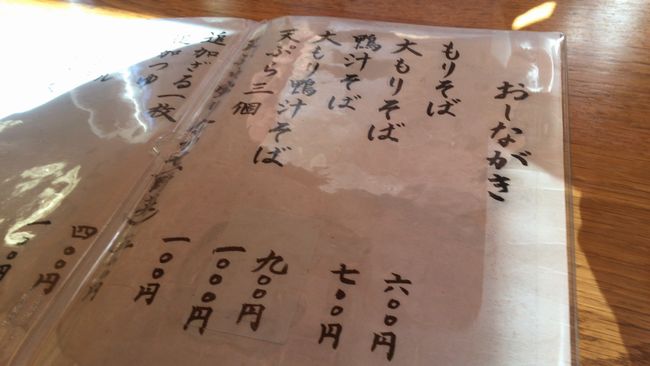 おしながき
もりそば 六〇〇円
大もりそば 七〇〇円
鴨汁そば 九〇〇円
大もり鴨汁そば 一〇〇〇円
天ぷら三個 一〇〇円
追加ざる一枚 四〇〇円
追加つゆ